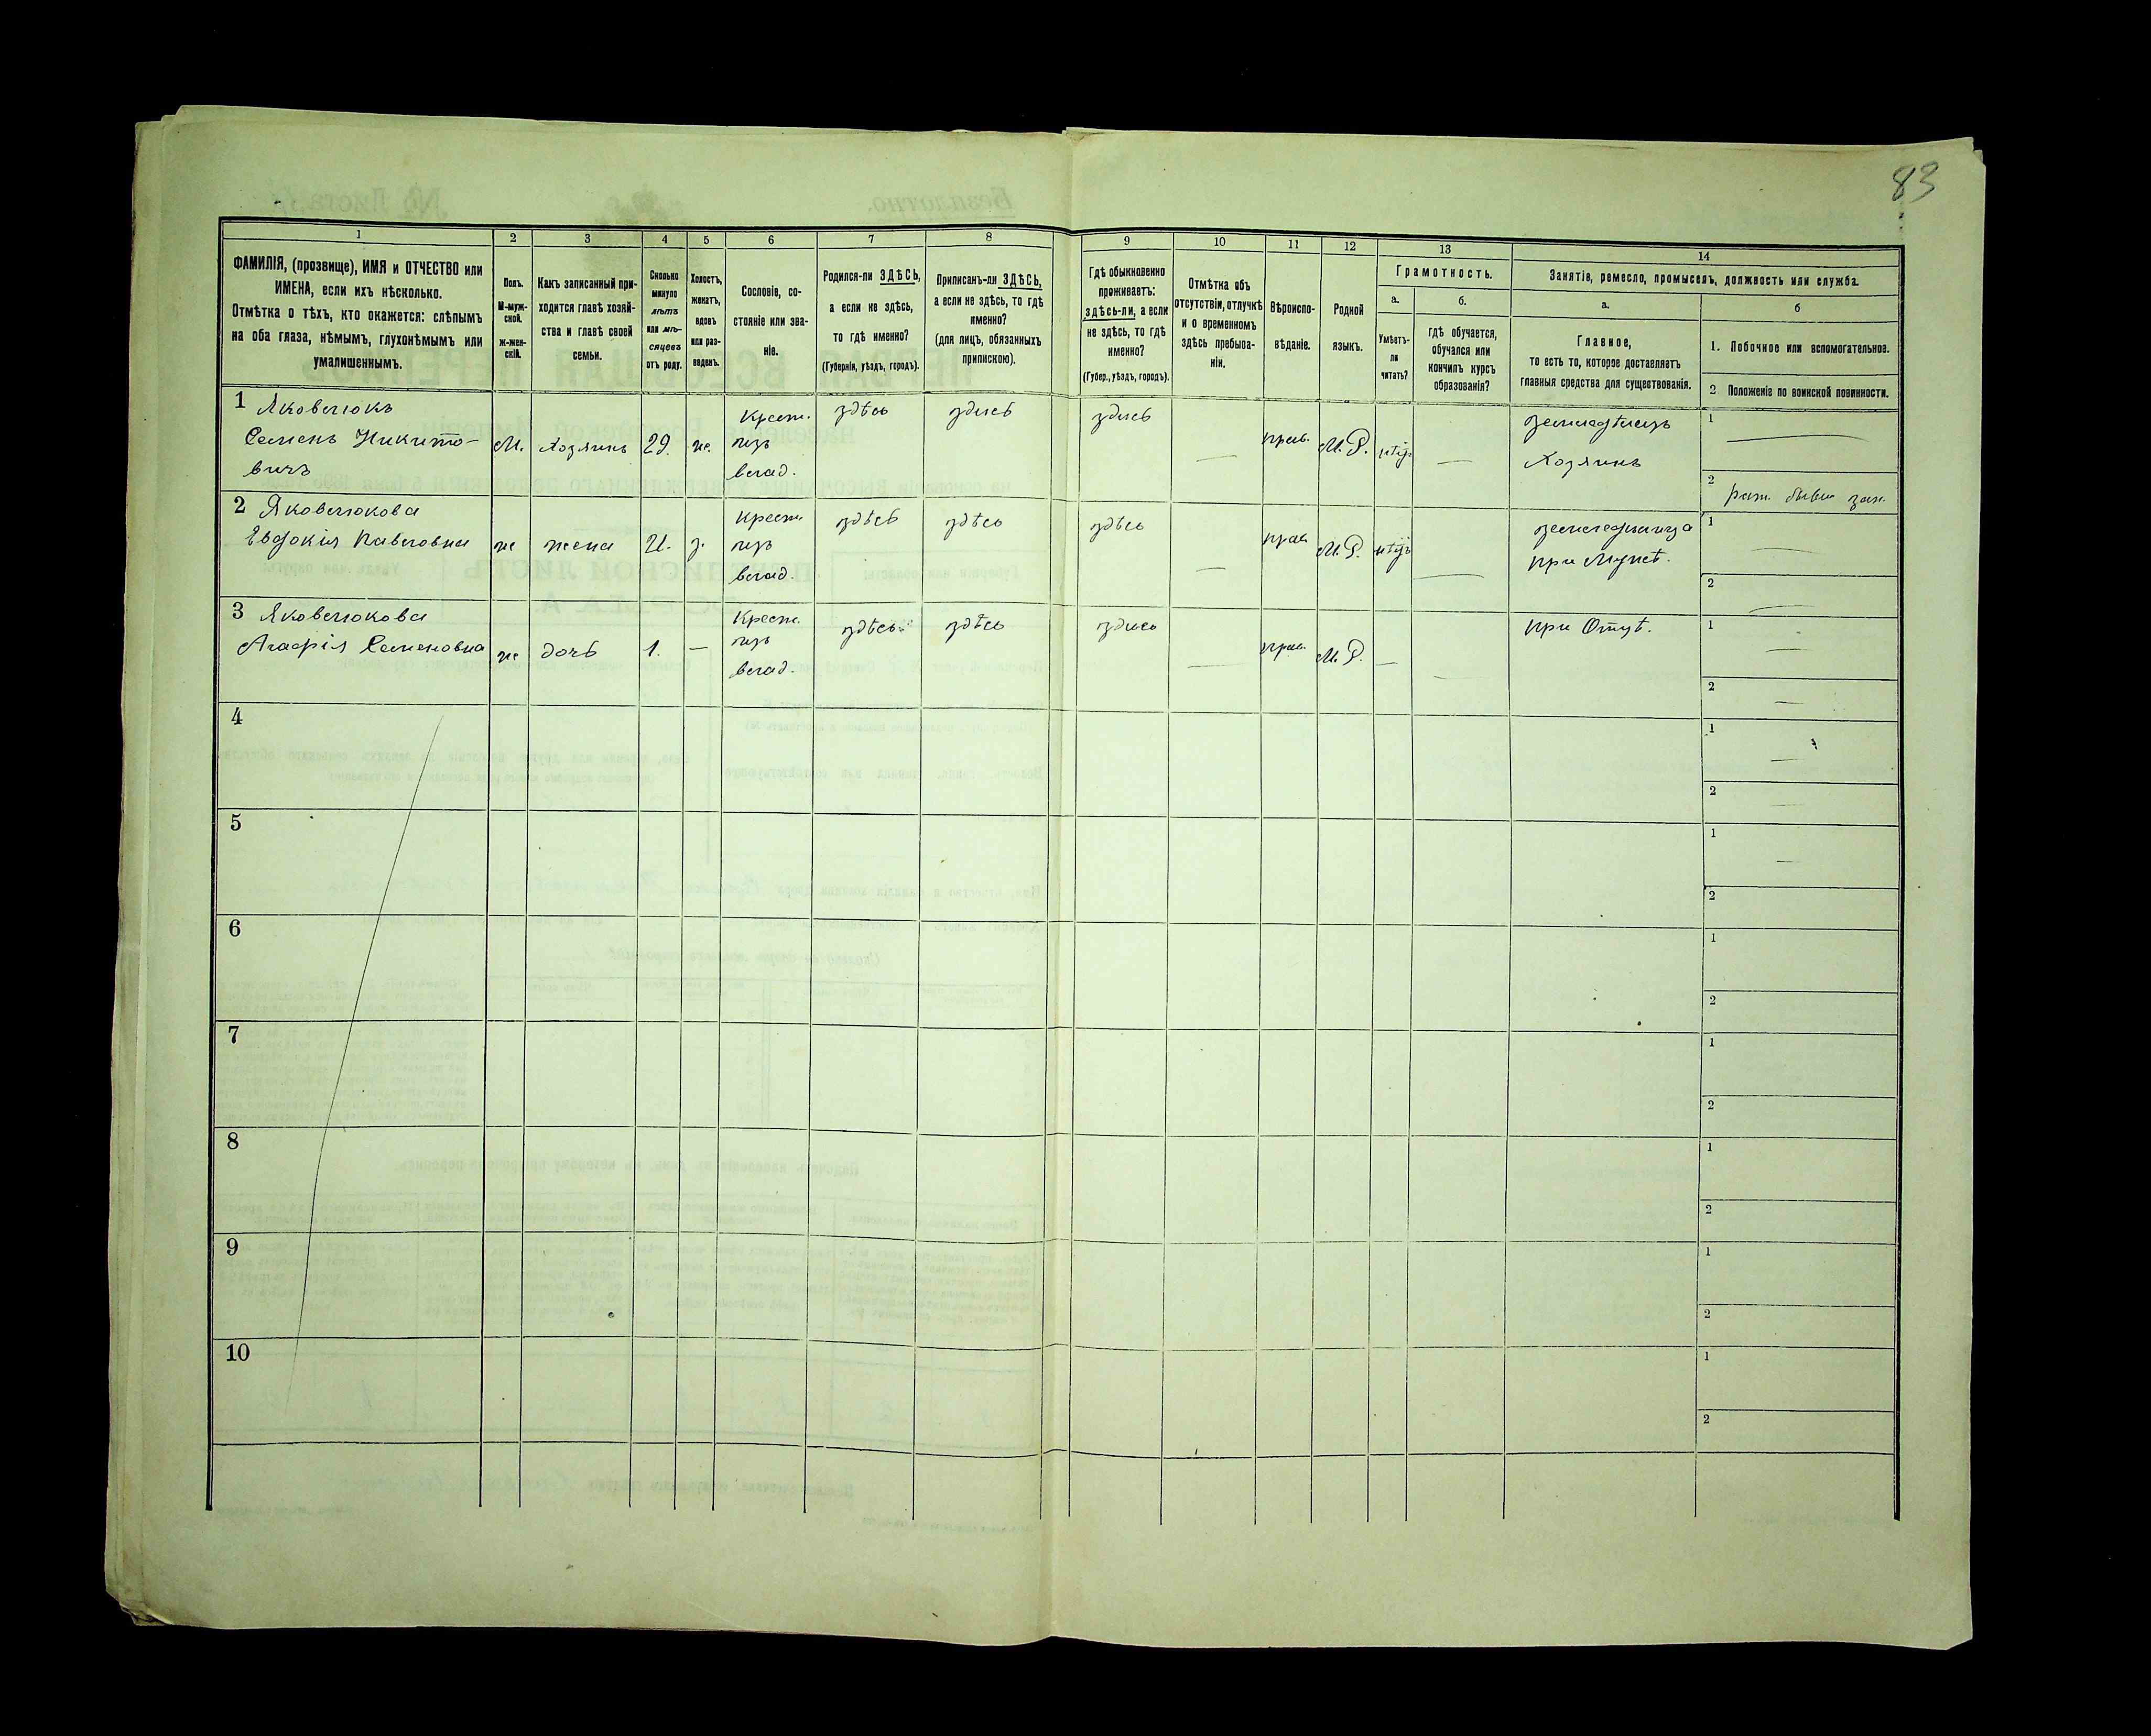 83
1 2 3 4 5 6 7 8 9 10 11 12 13 14
ФАМИЛІЯ, (прозвище), ИМЯ и ОТЧЕСТВО или
ИМЕНА, если ихъ нѣсколько.
Отмѣтка о тѣхъ, кто окажется: слѣпымъ
на оба глаза, нѣмымъ, глухонѣмымъ или
умалишеннымъ.
Полъ.
М-муж-
ской.
ж-жен-
скій.
Какъ записанный при-
ходится главѣ хозяй-
ства и главѣ своей
семьи.
Сколько
минуло
лѣтъ
или мѣ-
сяцевъ
отъ роду.
Холостъ,
женатъ,
вдовъ
или раз-
веденъ.
Сословіе, со-
стояніе или зва-
ніе.
Родился-ли ЗДѢСЬ,
а если не здѣсь,
то гдѣ именно?
(Губернія, уѣздъ, городъ).
Приписанъ-ли ЗДѢСЬ,
а если не здѣсь, то гдѣ
именно?
(для лицъ, обязанныхъ
припискою).
Гдѣ обыкновенно
проживаетъ:
здѣсь-ли, а если
не здѣсь, то гдѣ
именно?
(Губер., уѣздъ, городъ).
Отмѣтка объ
отсутствіи, отлучкѣ
и о временномъ
здѣсь пребыва-
ніи.
Вѣроиспо-
вѣданіе.
Родной
языкъ.
Грамотность.
а.
Умѣетъ-
ли
читать?
б.
гдѣ обучается,
обучался или
кончилъ курсъ
образованія?
Занятіе, ремесло, промыселъ, должность или служба.
а.
Главное,
то есть то, которое доставляетъ
главныя средства для существованія.
б
1. Побочное или вспомогательное.
2 Положеніе по воинской повинности.
1 Яковлюкъ
Семенъ Никито-
вичъ
М. Хозяинъ 29. же.
Крест.
изъ
влад.
здѣсь здись здись — прав. М.Р. нѣтъ —
земледѣлецъ
Хозяинъ
1 —
2
2 Яковлюкова
Евдокія Павловна
же жена 21. з.
Крест.
изъ
влад.
здѣсь здѣсь здѣсь — прав. М.Р. нѣтъ —
земледѣлица
при Мужѣ.
1 —
2 —
3 Яковлюкова
Агафія Семеновна
же дочь 1. —
Крест.
изъ
влад.
здѣсь здѣсь здись — прав. М.Р. — —
при Отцѣ.
1 —
2 —
4
1 —
2 —
5
1 —
2
6
1
2
7
1
2
8
1
2
9
1
2
10
1
2